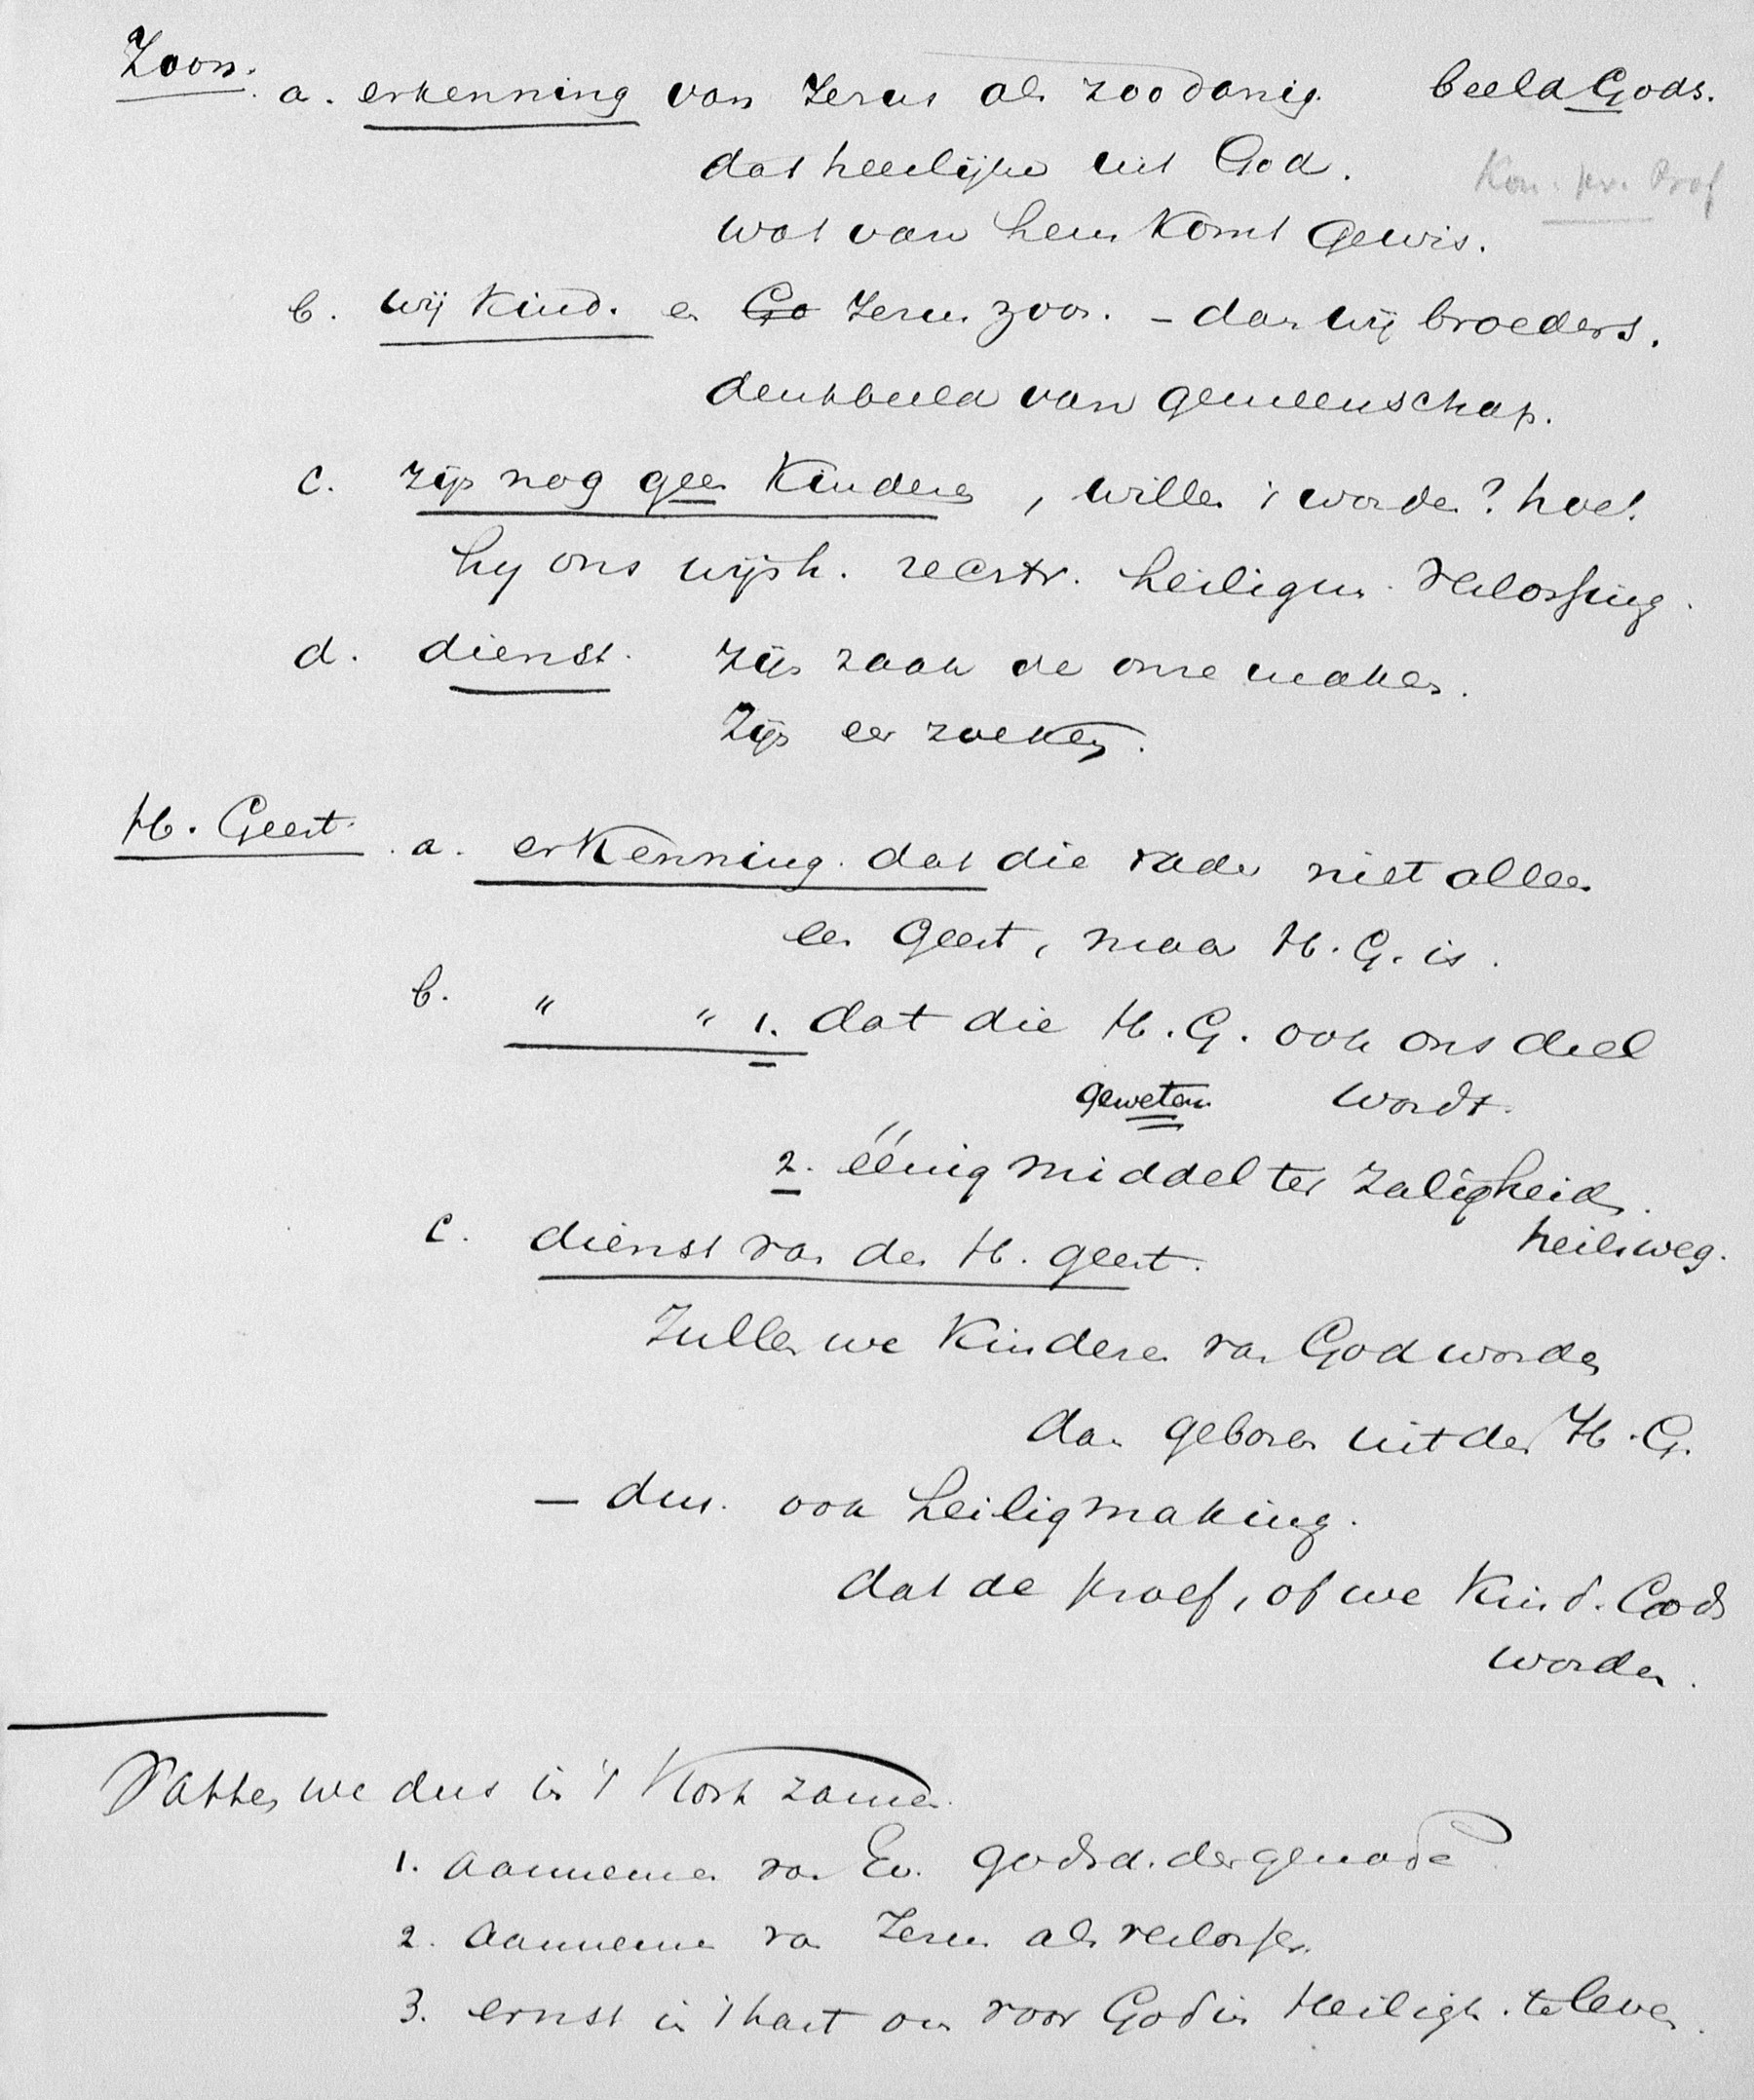 Zoon.
a. erkenning van Jezus als zoodanig. beeld Gods.
dat heerlijke uit God. Kon. pr. Prof
wat van hem komt gewis.
b. wij kind. en Go Jezus zoon. – dan wij broeders.
denkbeeld van gemeenschap.
c. zijn nog geen kinderen, willen 't worden? hoe!
hij ons wijsh. rechtv. heiligm. verlossing.
d. dienst. zijn zaak de onze maken.
Zijn eer zoeken.
H. Geest. a. erkenning. dat die vader niet alleen
een geest, maar H. G. is.
b. " " 1. dat die H. G. ook ons deel
geweten wordt.
2. éénig middel ter zaligheid.
heilsweg.
c. dienst van den H. geest.
Zullen we kinderen van God worden
dan geboren uit den H. G.
– dus ook heiligmaking.
dat de proef, of we kind. Gods
worden.
Vatten we dus in 't kort zamen.
1. aannemen van Ev. godsd. der genade
2. aannemen van Jezus als verlosser.
3. ernst in 't hart om voor God in heiligh. te leven.